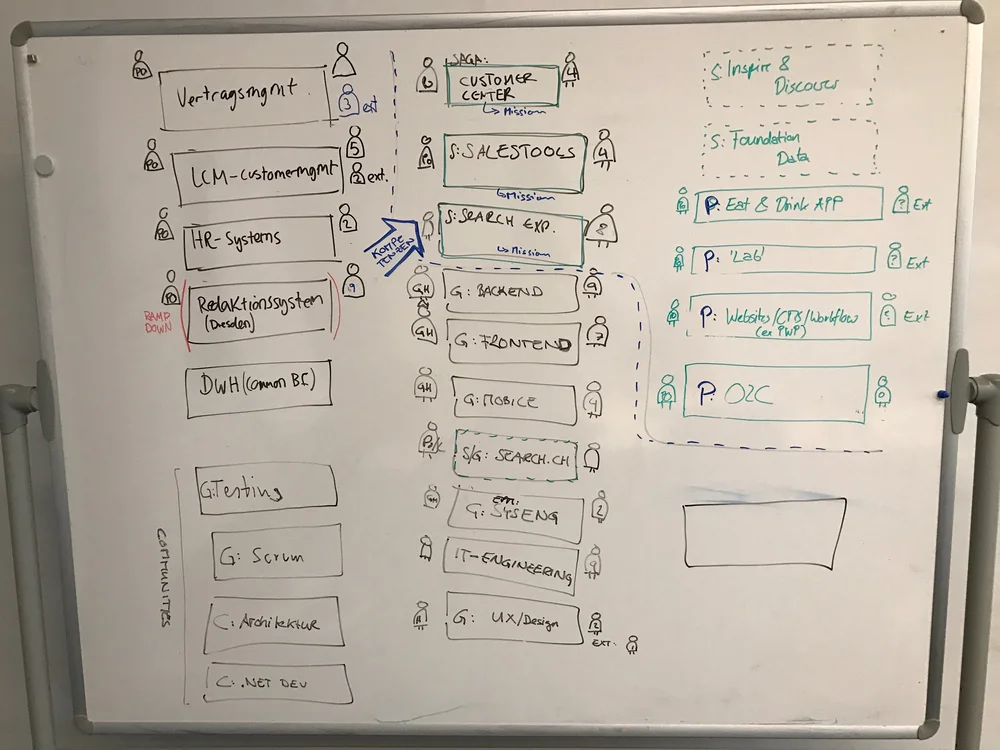 PO
Vertragsmgmt.
3 ext
PO
LCM-Customermgmt
5
2 ext.
PO
HR-Systems
2
PO
Redaktionssystem
(Dresden)
9
RAMP
DOWN
DWH (Common BI)
COMMUNITIES
G: Testing
G: Scrum
C: Architektur
C: .NET DEV
KOMPE
TENZEN
SAGA:
CUSTOMER
CENTER
4
↳ Mission
PO
S: SALESTOOLS
4
↳ Mission
S: SEARCH EXP.
8
↳ Mission
GH
G: BACKEND
9
GH
G: FRONTEND
7
GH
G: MOBILE
4
S/G: SEARCH.CH
em.
G: SYSENG
2
IT-ENGINEERING
9
G: UX/Design
2
EXT:
S: Inspire &
Discover
S: Foundation
Data
P: Eat & Drink APP
? Ext
P: 'Lab'
? Ext
P: Website/CTX/Workflow
(ex PWP)
Ext
PO
P: O2C
0